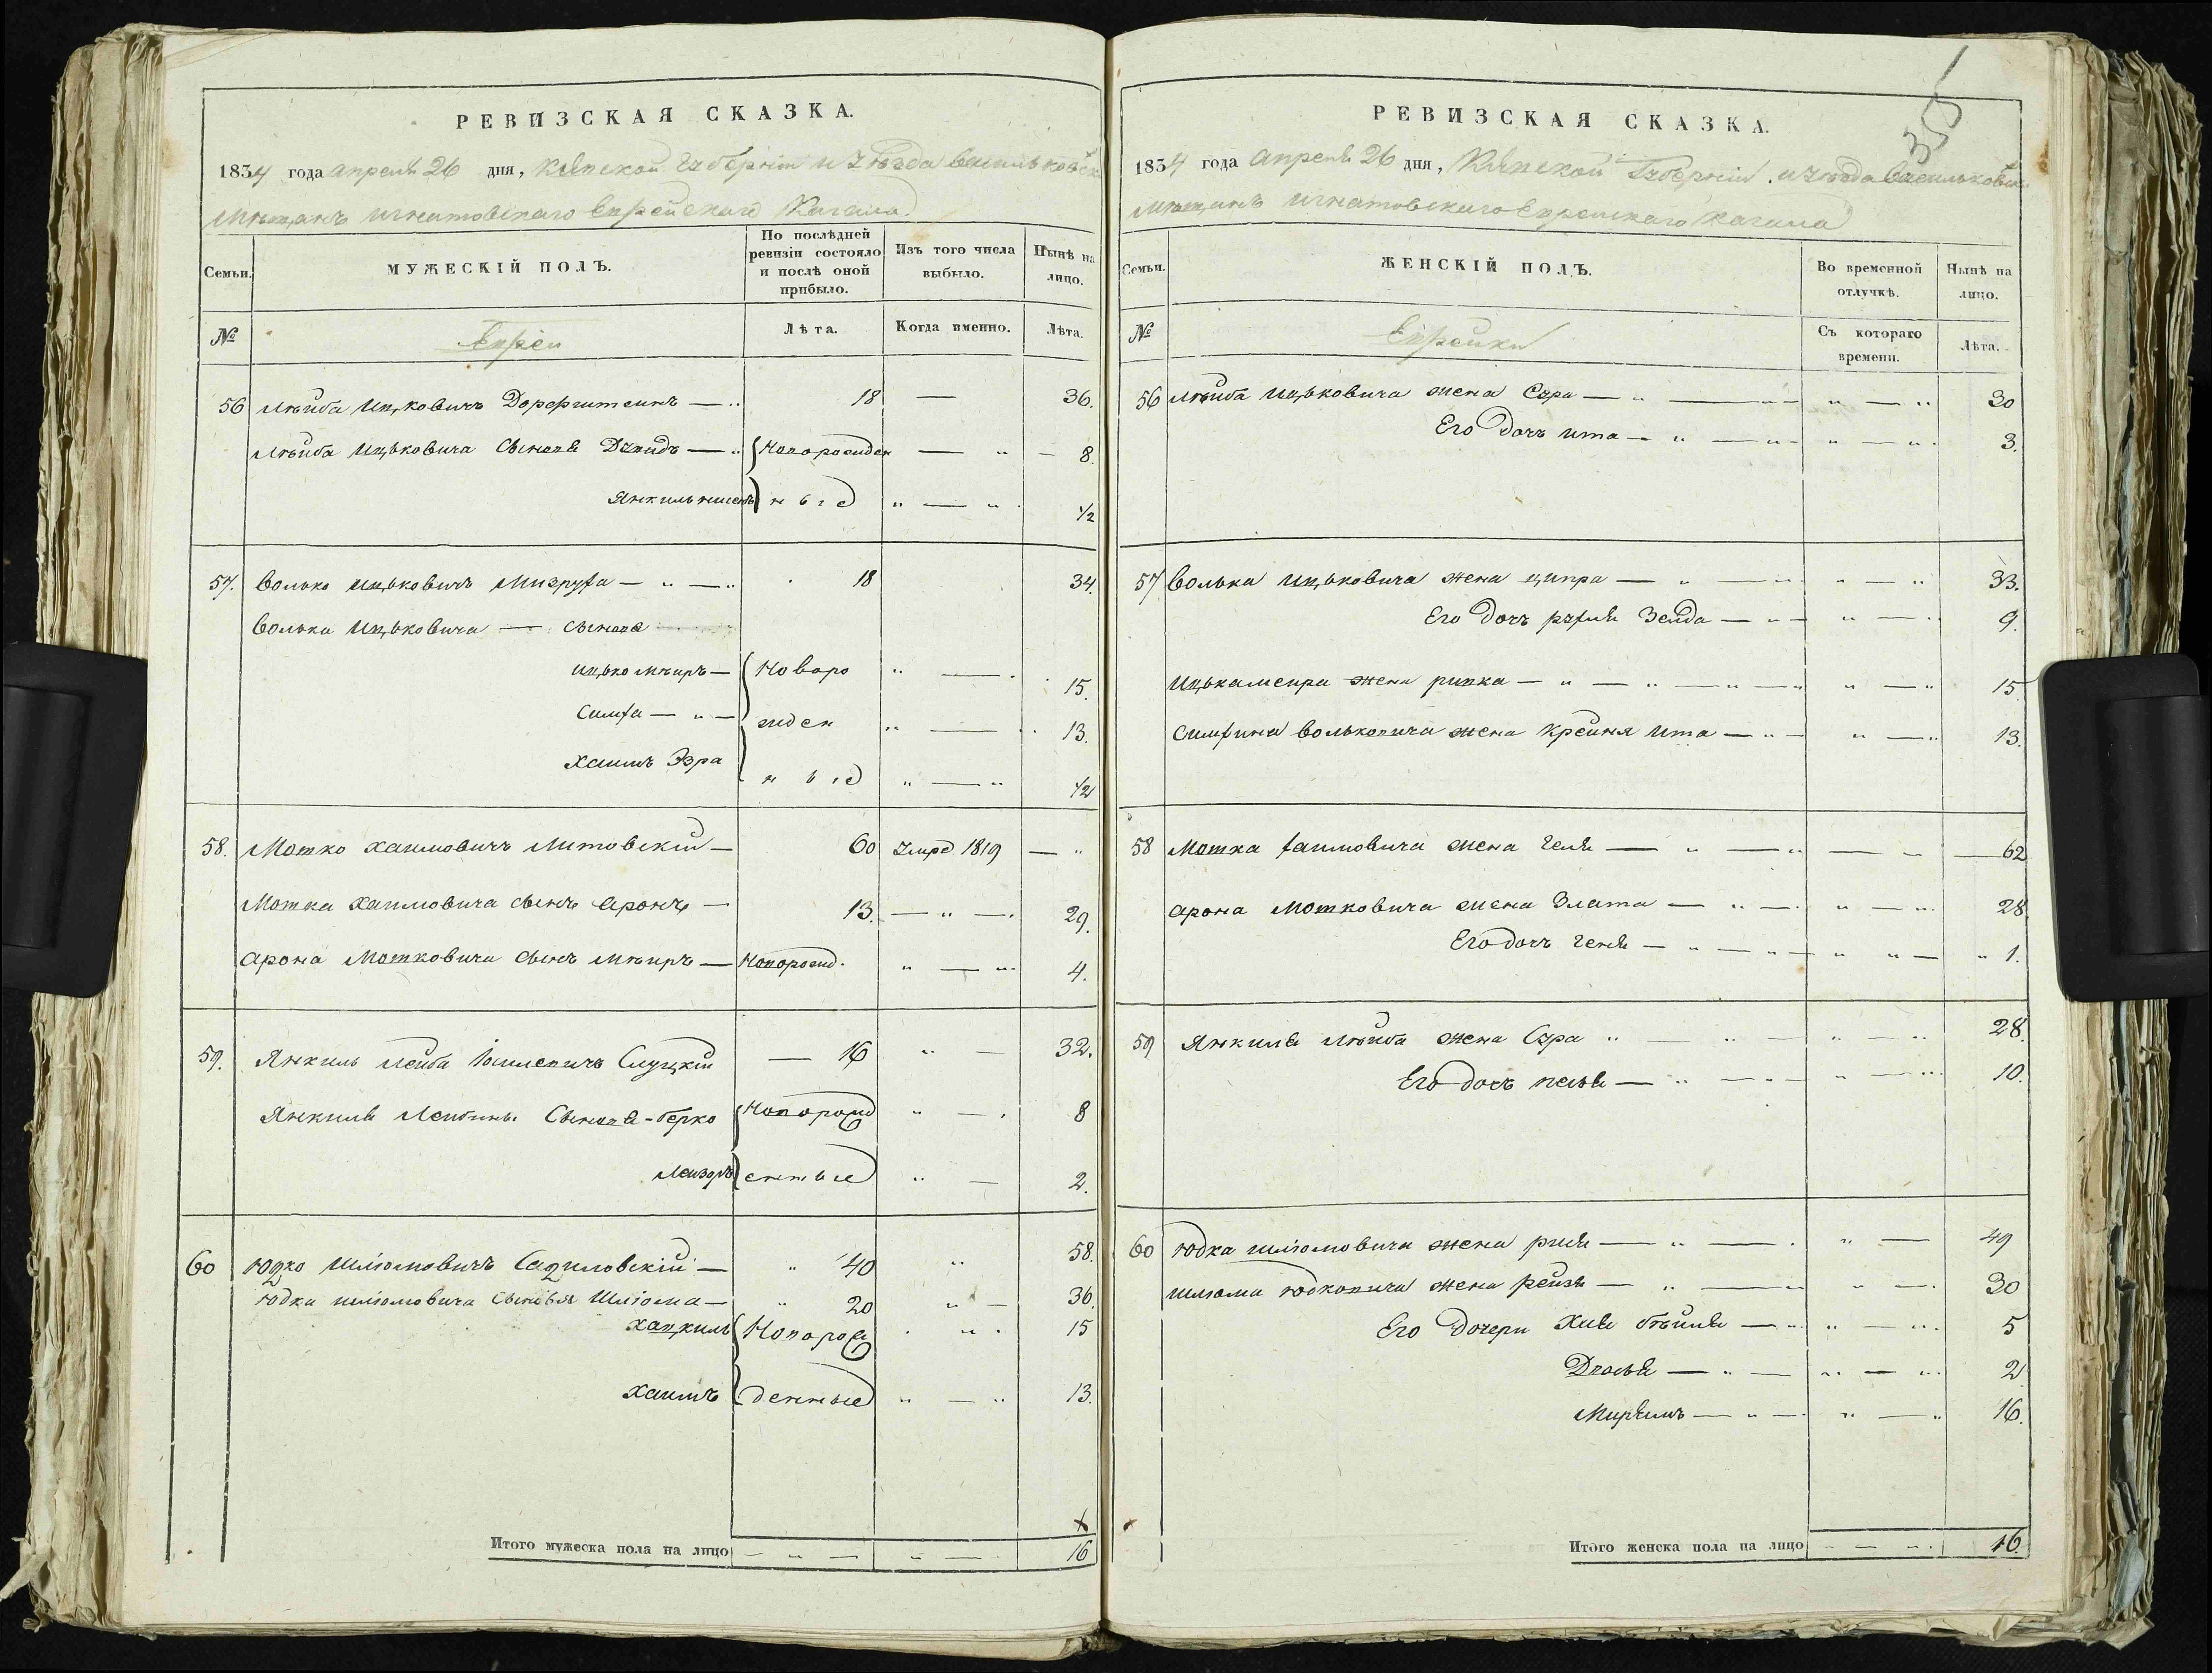 РЕВИЗСКАЯ СКАЗКА.
1834 года апреля 26 дня, Кіевской Губерніи и уѣзда Васильковск
Мѣщанъ Игнатовскаго Еврейскаго Кагала
Семьи.
МУЖЕСКІЙ ПОЛЪ.
По послѣдней ревизіи состояло и послѣ оной прибыло.
Изъ того числа выбыло.
Нынѣ на лицо.
№
Евреи
Лѣта.
Когда именно.
Лѣта.
56 Лѣйба Ицковичъ Дорфштеинъ — 18 — 36.
Лѣйба Ицьковича Сыновя Давидъ — Новорожден — 8.
Янкиль ныя — 1/2
57. Волько Ицьковичъ — 18 34.
Волька Ицьковича — сыновя
Ицько мѣиръ — Новоро — 15.
Симха — жден — 13.
Хаимъ Эзра ныя — 1/2
58. Мотко Хаимовичъ Литовскій — 60 Умре 1819 —
Мотка Хаимовича сынъ Аронъ — 13. — 29.
Арона Мотковича сынъ Мѣиръ — Новорожд. — 4.
59. Янкиль Лейба Слуцкій — 16 — 32.
Янкиля Лейбины Сыновя - Берко Новорожд — 8
Лейзоръ енные — 2.
60 Юдко Шліомовичъ Садиловскій — 40 58.
Юдка Шліомовича сыновья Шліома — 20 — 36.
Хацкиль Новорож 15
Хаимъ денные — 13.
Итого мужеска пола на лицо — 16
РЕВИЗСКАЯ СКАЗКА.
1834 года апреля 26 дня, Кіевской Губерніи и уѣзда Васильковск
Мѣщанъ Игнатовскаго Еврейскаго Кагала
Семьи.
ЖЕНСКІЙ ПОЛЪ.
Во временной отлучкѣ.
Нынѣ на лицо.
№
Еврейки
Съ котораго времени.
Лѣта.
56 Лѣйба Ицьковича жена Сура — 30
Его дочъ Ита — 3.
57 Волька Ицьковича жена Ципра — 33.
Его дочъ рухля Зелда — 9.
Ицькамеира жена ривка — 15.
Симхина Вольковича жена Крейня Ита — 13.
58 Мотка Хаимовича жена Геля — 62
Арона Мотковича жена Злата — 28
Его дочъ Геня — 1.
59 Янкиля Лѣйба жена Сура — 28.
Его дочъ песя — 10.
60 Юдка Шліомовича жена — 49
Шлюма Юдковича жена рейзя — 30
Его дочери Хая бѣйля — 5
Двося — 2
Миріямъ — 16.
Итого женска пола на лицо — 16.